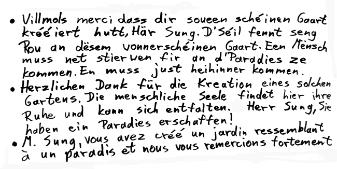 • Villmols merci dass dir soueen schéinen Gaart
kréeiert hutt, Här Sung. D'Séil fennt seng
Rou an dësem wonnerschéinen Gaart. Een Mënsch
muss net stierwen fir an d'Paradies ze
kommen. En muss just heihinner kommen.
• Herzlichen Dank für die Kreation eines solchen
Gartens. Die menschliche Seele findet hier ihre
Ruhe und kann sich entfalten. Herr Sung, Sie
haben ein Paradies erschaffen!
• M. Sung, vous avez créé un jardin ressemblant
à un paradis et nous vous remercions fortement